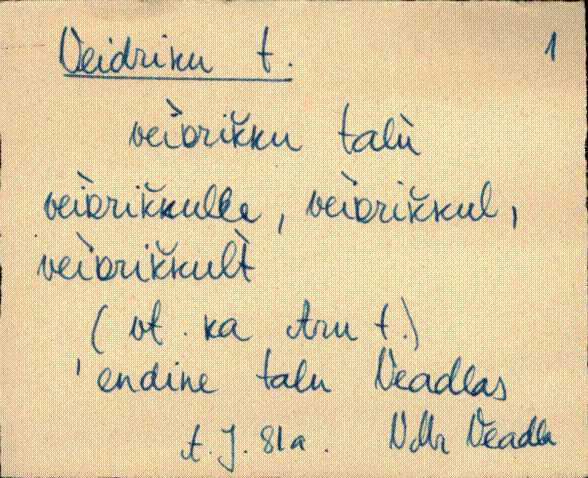 Veidriku t. 1
vèiᴅrik̆ku talù
vèiᴅrik̆kulle, vèiᴅrik̆kul,
vèiᴅrik̆kult̀
(vt. ka Aru t.)
'endine talu Veadlas
A. J. 81a. VMr Veadla